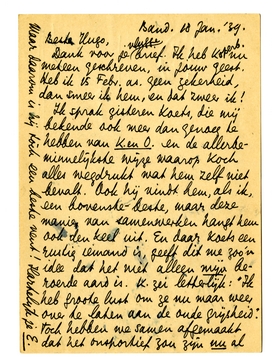 Band. 18 Jan. '39.
Beste Hugo,
Dank voor je brief. Ik heb Koch nu
meteen geschreven, in jouw geest.
Heb ik 15 Febr. as. geen zekerheid,
dan smeer ik hem, en dat zweer ik!
Ik sprak gisteren Koets, die mij
bekende ook meer dan genoeg te
hebben van Ken O. en de allerbe-
minnelijkste wijze waarop Koch
alles wegdrukt wat hem zelf niet
bevalt. Ook hij vindt hem, als ik,
een bovenste-beste, maar deze
manier van samenwerken hangt hem
ook den keel uit. En daar Koets een
rustig iemand is, geeft dit me zoo'n
idee dat het niet alleen mijn ver-
toerde aard is. K. zei letterlijk: "Ik
heb groote lust om ze nu maar weer
over te laten aan de oude grijsheid."
Toch hebben we samen afgemaakt
dat het onsportief zou zijn nu al
Maar daarom is hij toch een beste vent! Hartelijk je E.